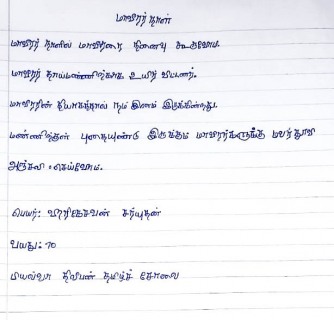 மாவீரர் நாள்
மாவீரர் நாளில் மாவீரரை நினைவு கூருவோம்.
மாவீரர் தாய்மண்ணிற்காக உயிர் விட்டனர்.
மாவீரரின் தியாகத்தால் நம் இனம் இருக்கின்றது.
மண்ணிற்குள் புதையுண்டு இருக்கும் மாவீரர்களுக்கு மலர் தூவி
அஞ்சலி செய்வோம்.
பெயர்: சரியுதன்
வயது: 10
திலீபன் தமிழ்ச் சோலை